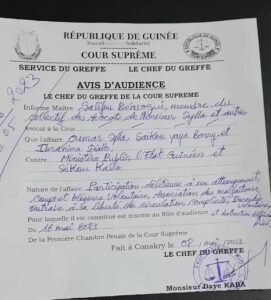 RÉPUBLIQUE DE GUINÉE
Travail Solidarité
COUR SUPRÊME
SERVICE DU GREFFE LE CHEF DU GREFFE
AVIS D'AUDIENCE
LE CHEF DU GREFFE DE LA COUR SUPREME
Informe Maître membre du
collectif des Avocats de Monsieur Sylla et autres
Avocat à la Cour
Que l'affaire Oumar Sylla, Saikou yaya Barry et
Ibrahima Diallo
Contre Ministère Public, l'Etat Guinéen et
Sékou Kalin
Nature de l'affaire Participation délictueuse à un attroupement,
Coups et blessure Volontaire, Association des malfaiteurs,
à la liberté de circulation, complicité, Incendie
Pour laquelle il est constitué est inscrite au Rôle d'audience et destruction
Du 16 mai 2023
De la Première Chambre Pénale de la Cour Suprême
Fait à Conakry le 08 mai 2023.
LE CHEF DU GREFFE
Monsieur Daye KABA